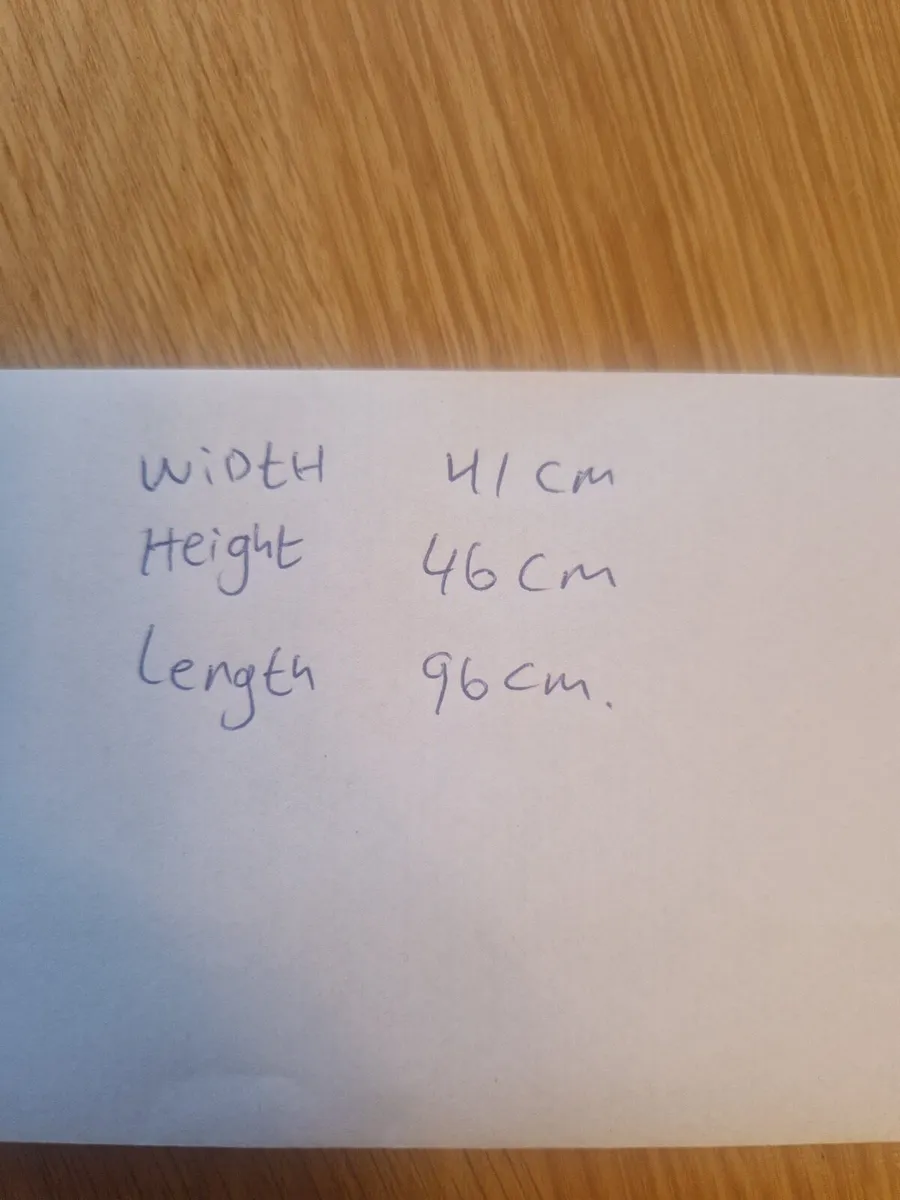 WiDtH 41 cm
Height 46 cm
Length 96 cm.